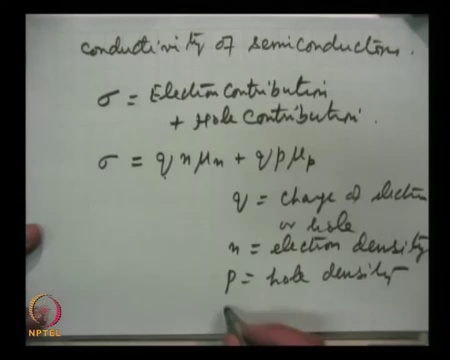 conductivity of semiconductors.
σ = Electron Contribution
+ Hole Contribution.
σ = q n μn + q p μp
q = charge of electron
or hole
n = electron density
p = hole density
NPTEL